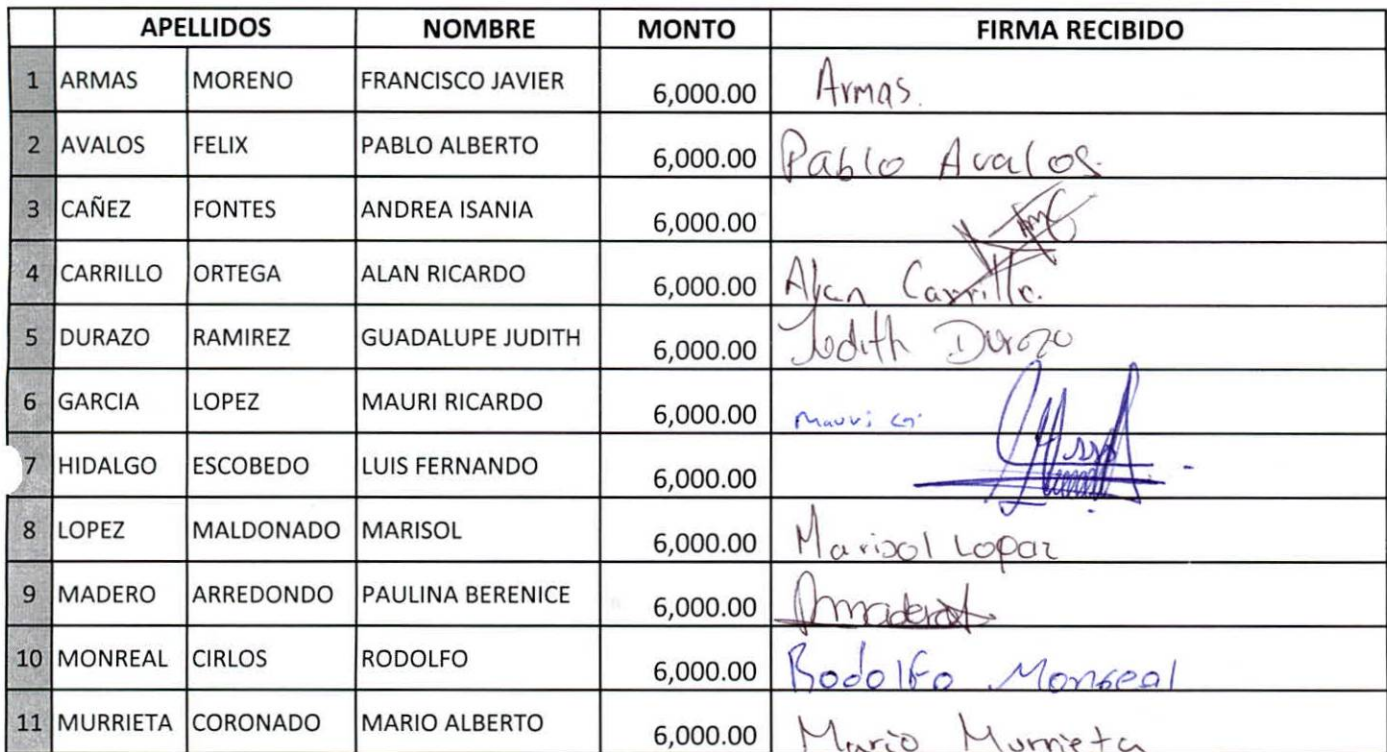 APELLIDOS NOMBRE MONTO FIRMA RECIBIDO
1 ARMAS MORENO FRANCISCO JAVIER 6,000.00 Armas.
2 AVALOS FELIX PABLO ALBERTO 6,000.00 Pablo Avalos.
3 CAÑEZ FONTES ANDREA ISANIA 6,000.00
4 CARRILLO ORTEGA ALAN RICARDO 6,000.00 Alan Carrillo.
5 DURAZO RAMIREZ GUADALUPE JUDITH 6,000.00 Judith Durazo
6 GARCIA LOPEZ MAURI RICARDO 6,000.00 Mauri G.
7 HIDALGO ESCOBEDO LUIS FERNANDO 6,000.00
8 LOPEZ MALDONADO MARISOL 6,000.00 Marisol Lopez
9 MADERO ARREDONDO PAULINA BERENICE 6,000.00
10 MONREAL CIRLOS RODOLFO 6,000.00 Rodolfo Monreal
11 MURRIETA CORONADO MARIO ALBERTO 6,000.00 Mario Murrieta